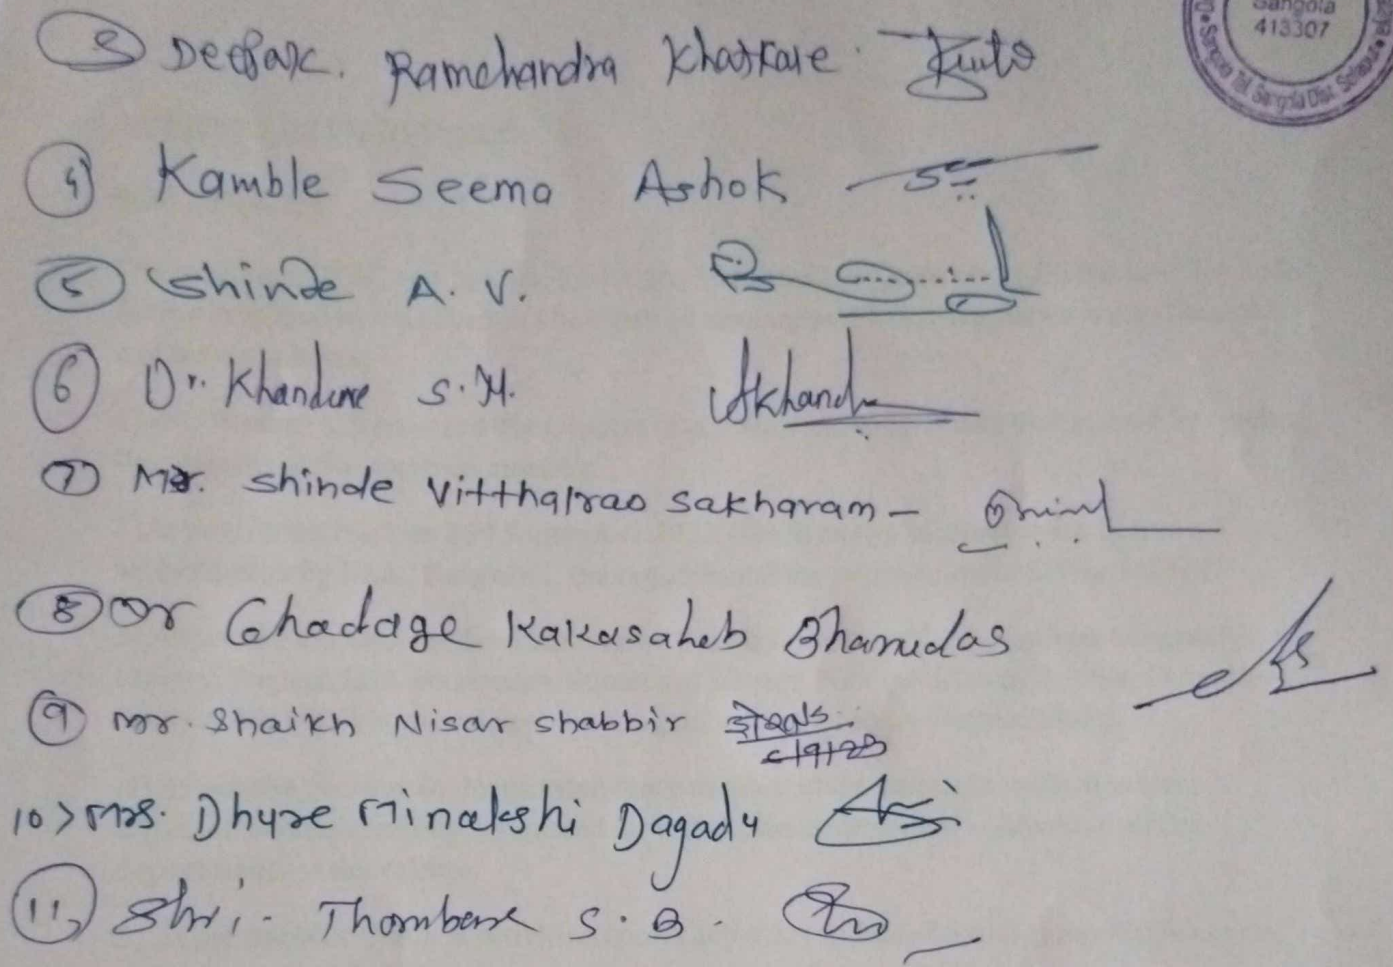 Sangola
413307
Sangola Tal. Sangola Dist. Solapur
3 Deepak. Ramchandra Khatkale.
4) Kamble Seema Ashok
5 Shinde A. V.
6 Dr. Khandare S. M.
7) Mr. Shinde Vitthalrao Sakharam -
8 Dr Ghadage Kakasaheb Bhanudas
9 Mr. Shaikh Nisar Shabbir
10> Mrs. Dhyre Minakshi Dagadu
11) Shri. Thombare S. B.